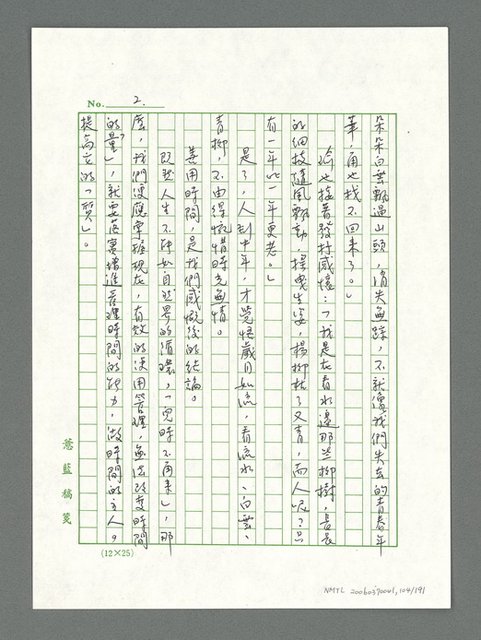 No. 2.
朵朵白雲飄過山頭，消失無蹤，不就像我們失去的青春年
華，再也找不回來了。」
瑜也接著發抒感懷：「我是在看水邊那些柳樹，長長
的細枝隨風飄動，搖曳生姿，楊柳枯了又青，而人呢？只
有一年比一年更老。」
是了，人到中年，才覺悟歲月如流，看流水、白雲、
青柳，不由得惋惜時光無情。
善用時間，是我們感慨後的結論。
既然人生不能如自然界的循環，「兒時不再來」，那
麼，我們便應掌握現在，有效的使用管理，無法改變時間
的「量」，就要落實增進管理時間的能力，做時間的主人，
提高它的「質」。
蕙藍稿箋
(12×25)
NMYL 20060370041, 104/191